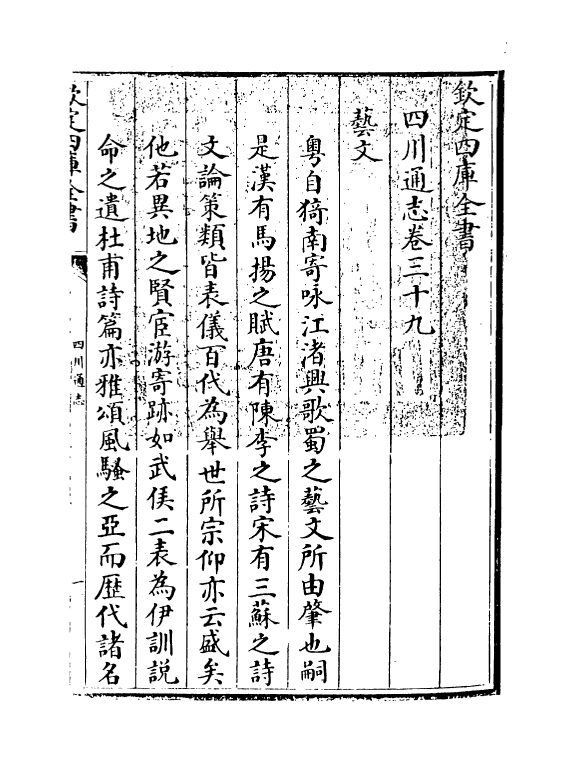 欽定四庫全書
四川通志卷三十九
藝文
粵自猗南寄咏江渚興歌蜀之藝文所由肇也嗣
是漢有馬揚之賦唐有陳李之詩宋有三蘇之詩
文論策類皆表儀百代為舉世所宗仰亦云盛矣
他若異地之賢宦游寄跡如武侯二表為伊訓説
命之遺杜甫詩篇亦雅頌風騷之亞而歷代諸名
欽定四庫全書
四川通志
一